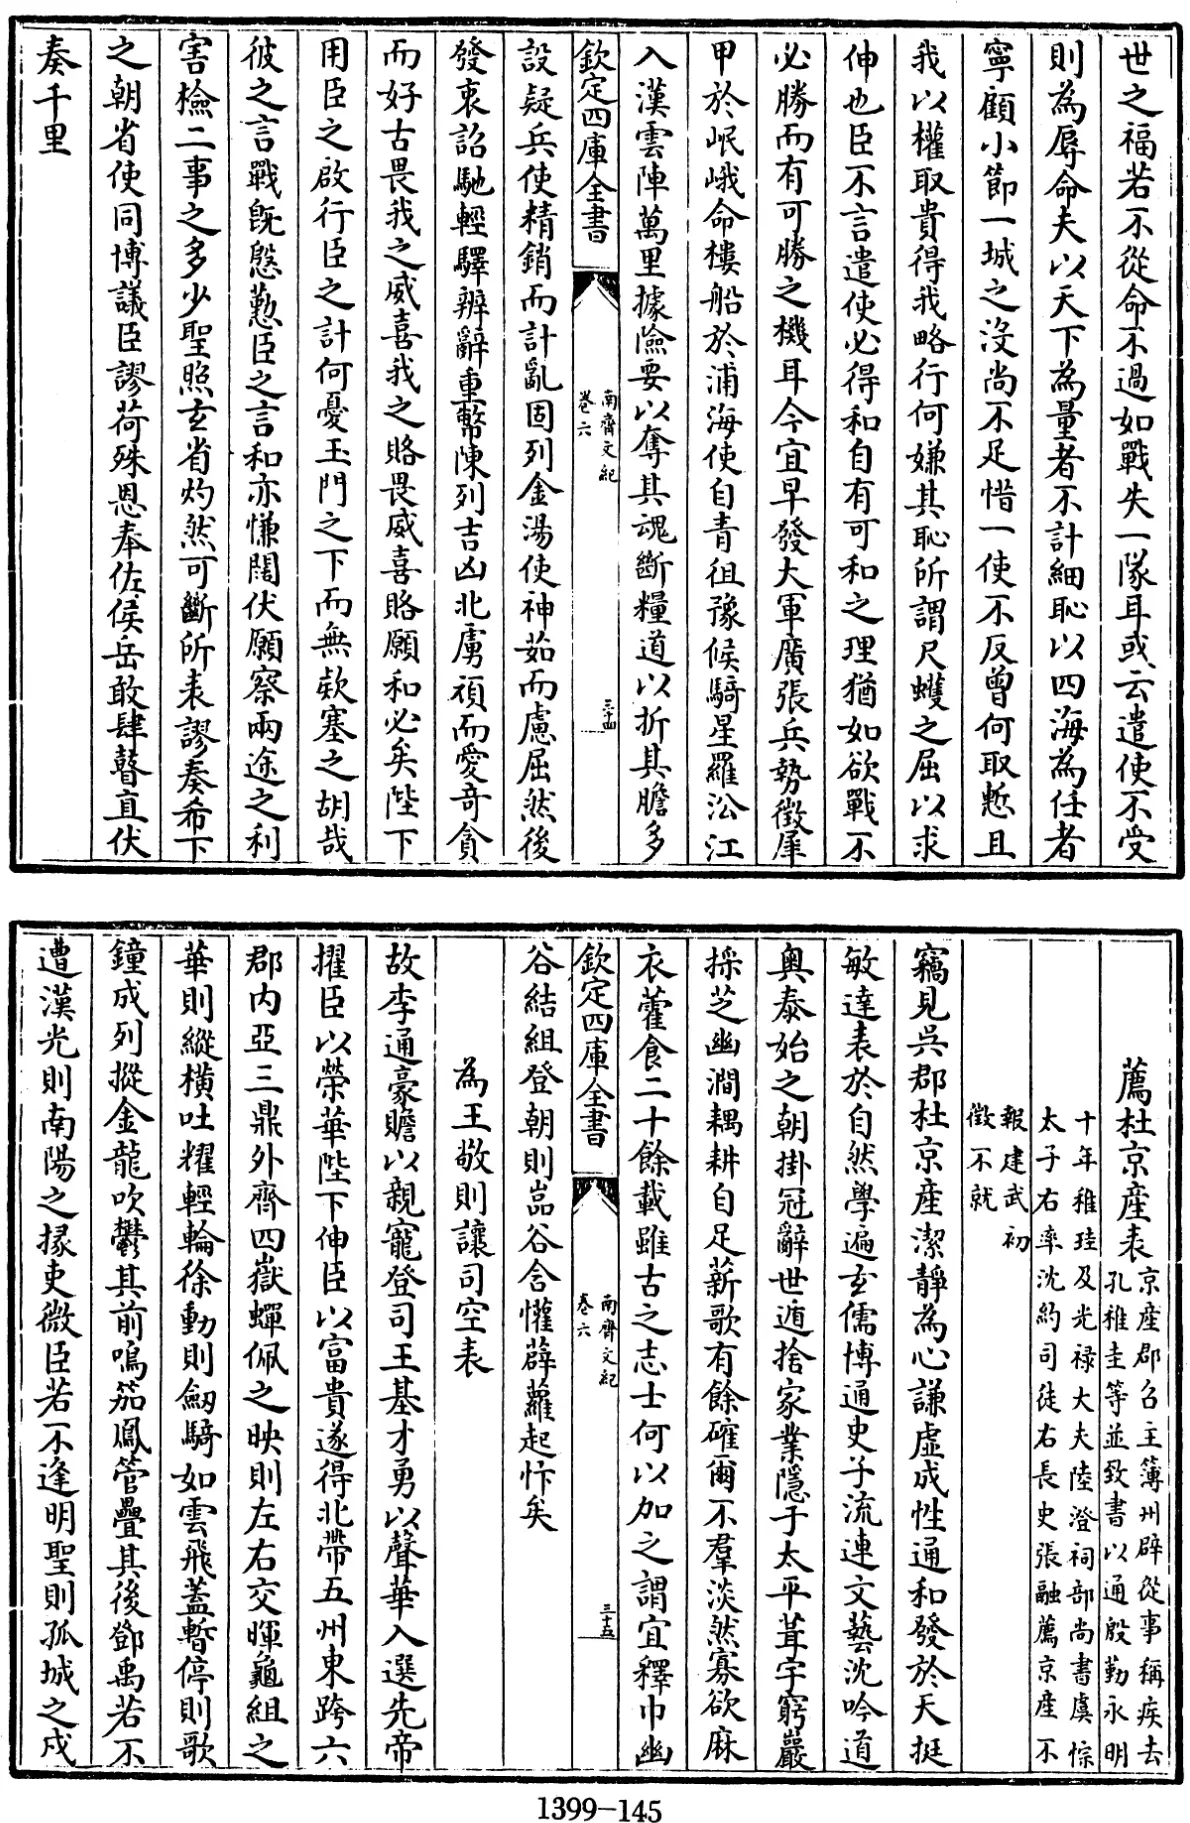 世之福若不從命不過如戰失一隊耳或云遣使不受
則為辱命夫以天下為量者不計細恥以四海為任者
寧顧小節一城之沒尚不足惜一使不反曽何取慙且
我以權取貴得我略行何嫌其恥所謂尺蠖之屈以求
伸也臣不言遣使必得和自有可和之理猶如欲戰不
必勝而有可勝之機耳今宜早發大軍廣張兵勢徵犀
甲於岷峨命樓船於浦海使自青徂豫候騎星羅沿江
入漢雲陣萬里據險要以奪其魂斷糧道以折其膽多
欽定四庫全書
南齊文紀
卷六
三十四
設疑兵使精銷而計亂固列金湯使神茹而慮屈然後
發衷詔馳輕驛辨辭重幣陳列吉凶北虜頑而愛奇貪
而好古畏我之威喜我之賂畏威喜賂願和必矣陛下
用臣之啟行臣之計何憂玉門之下而無欵塞之胡哉
彼之言戰既慇懃臣之言和亦慊闊伏願察兩途之利
害檢二事之多少聖照玄省灼然可斷所表謬奏希下
之朝省使同博議臣謬荷殊恩奉佐侯岳敢肆瞽直伏
奏千里
薦杜京産表
京産郡召主簿州辟從事稱疾去
孔稚圭等並致書以通殷勤永明
十年稚珪及光禄大夫陸澄祠部尚書虞悰
太子右率沈約司徒右長史張融薦京産不
報建武初
徵不就
竊見吳郡杜京産潔靜為心謙虛成性通和發於天挺
敏達表於自然學遍玄儒博通史子流連文藝沈吟道
奥泰始之朝掛冠辭世遁捨家業隱于太平葺宇窮巖
採芝幽澗耦耕自足薪歌有餘確爾不羣淡然寡欲麻
衣藿食二十餘載雖古之志士何以加之謂宜釋巾幽
欽定四庫全書
南齊文紀
卷六
三十五
谷結組登朝則嵓谷含懽薜蘿起忭矣
為王敬則讓司空表
故李通豪贍以親寵登司王基才勇以聲華入選先帝
擢臣以榮華陛下伸臣以富貴遂得北帶五州東跨六
郡内亞三鼎外齊四嶽蟬佩之映則左右交暉龜組之
華則縱横吐耀輕輪徐動則劒騎如雲飛蓋暫停則歌
鐘成列摐金龍吹鬱其前鳴笳鳳管疊其後鄧禹若不
遭漢光則南陽之掾吏微臣若不逢明聖則孤城之戍
1399-145